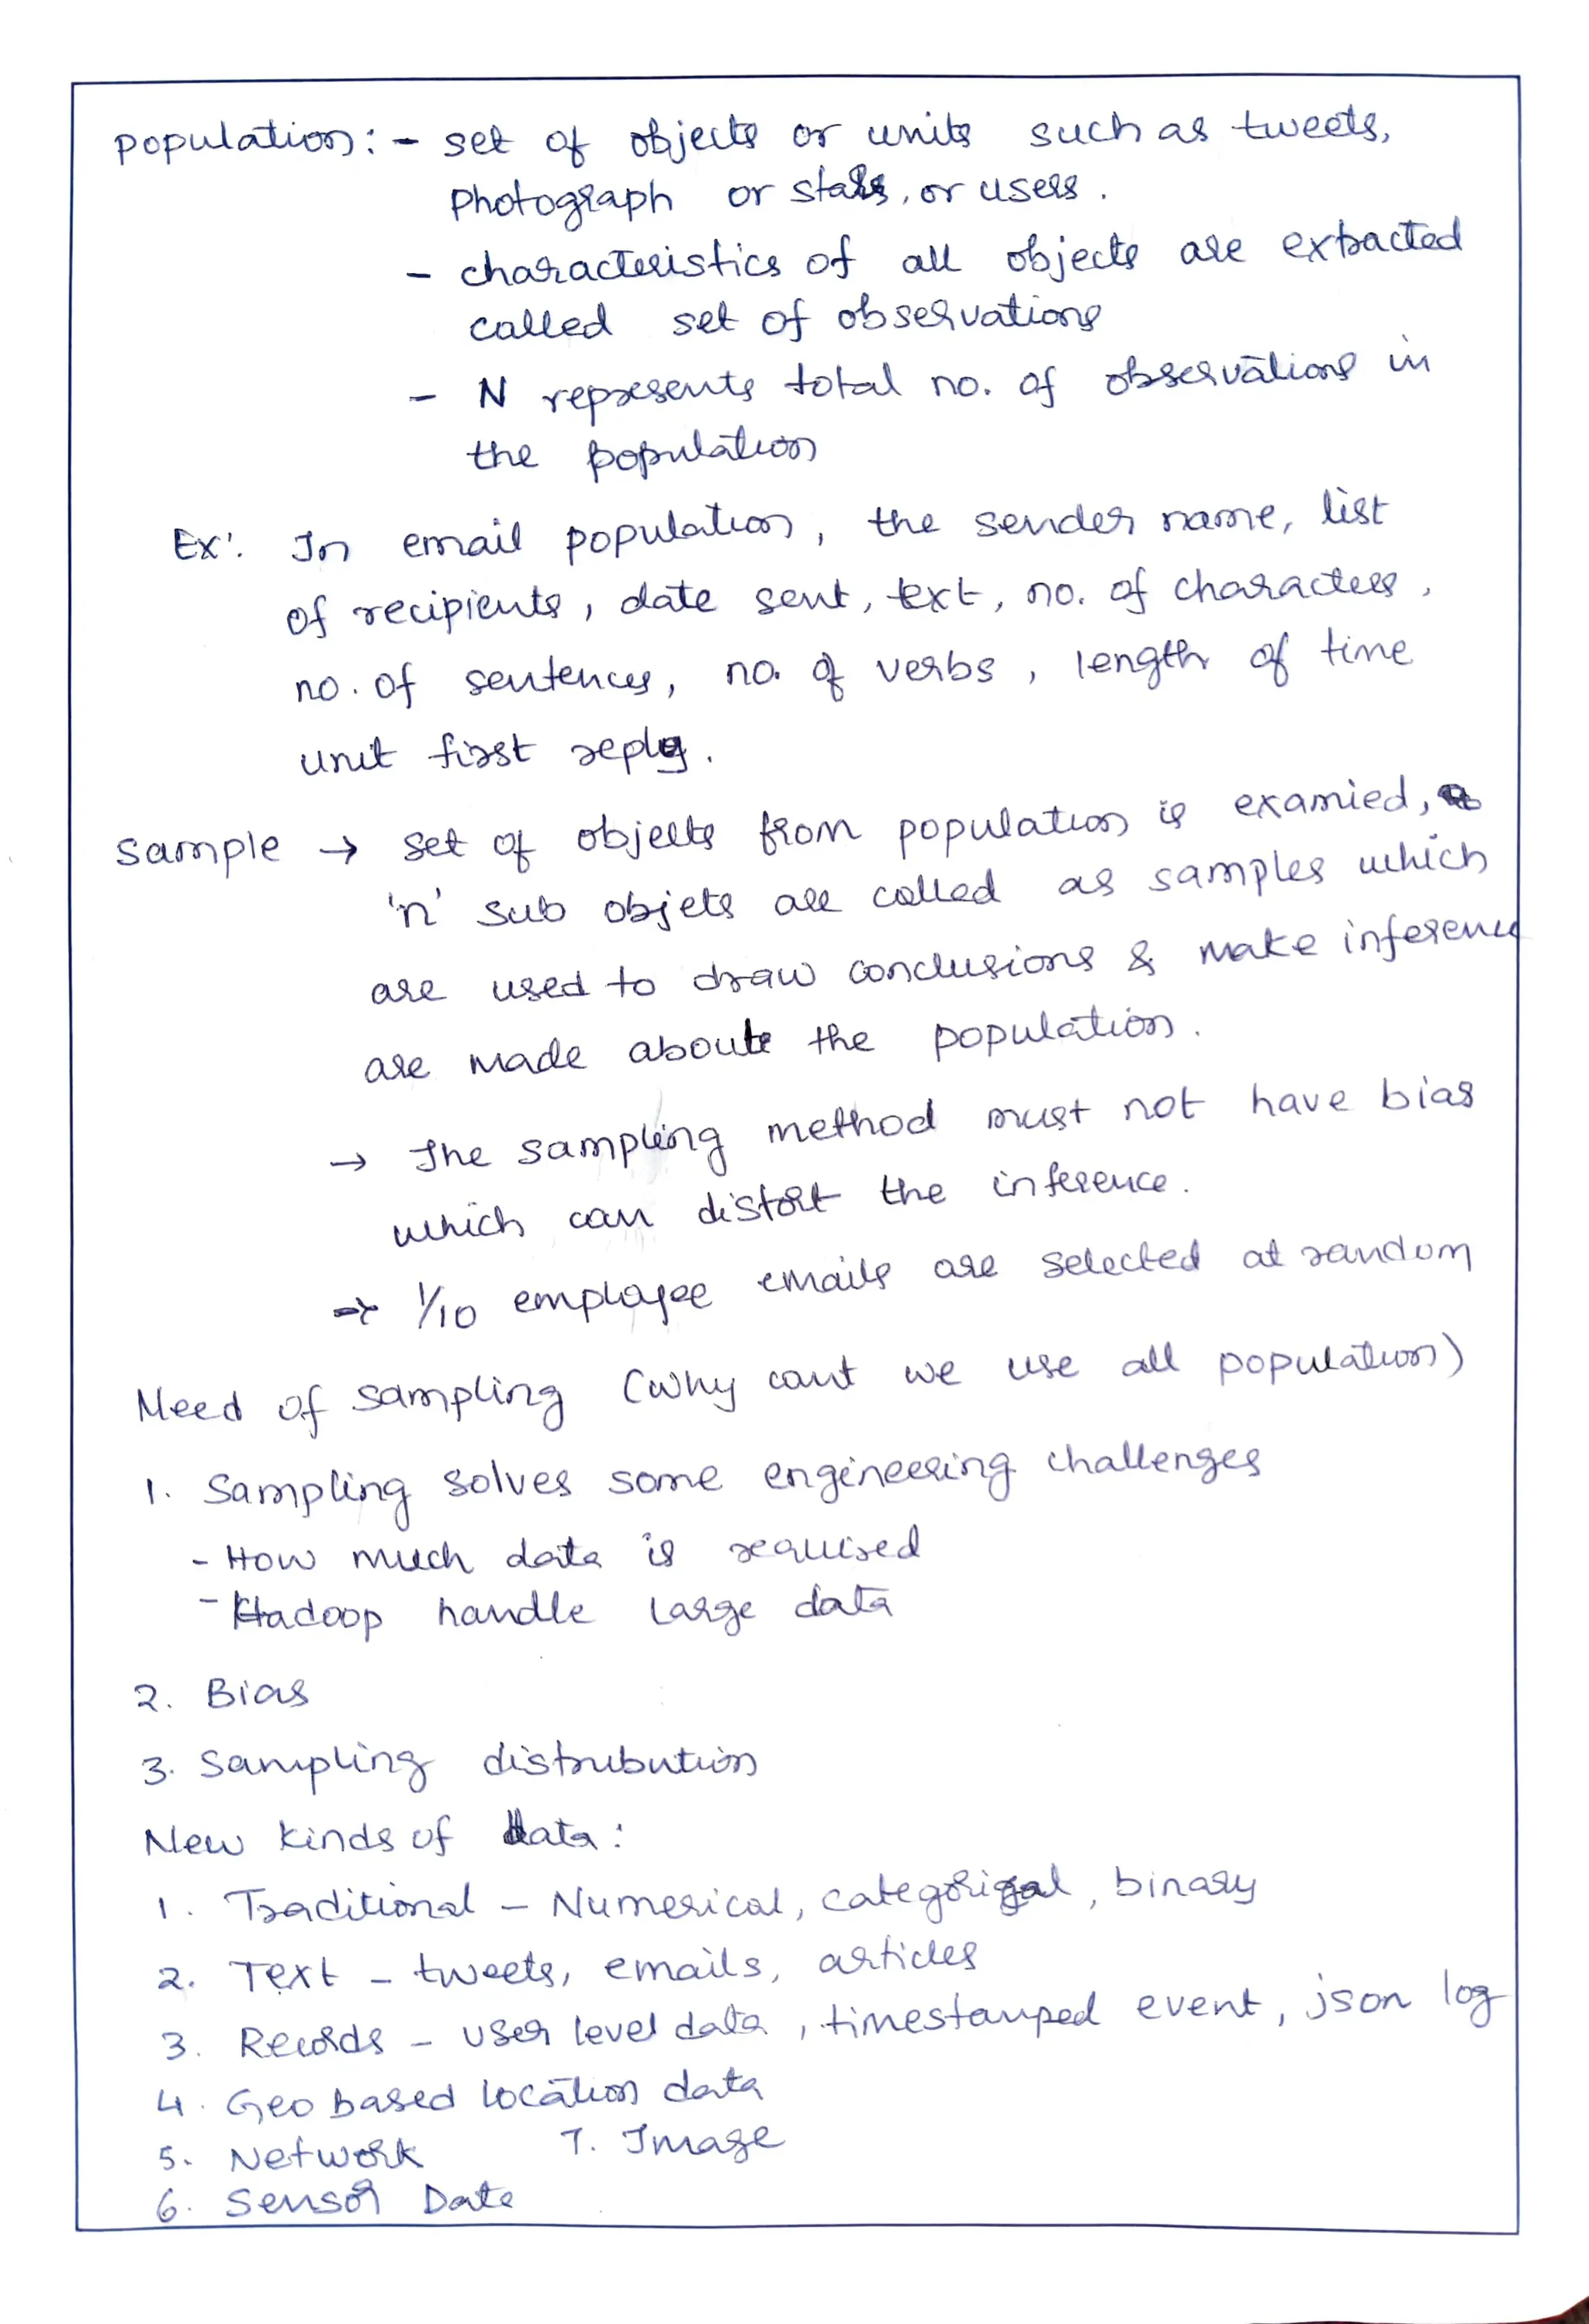 population: - set of objects or units such as tweets,
Photograph or stars, or users.
- characteristics of all objects are extracted
called set of observations
- N represents total no. of observations in
the population
Ex: In email population, the sender name, list
of recipients, date sent, text, no. of characters,
no. of sentences, no. of verbs, length of time
unit first reply.
Sample → set of objects from population is examied,
'n' sub objets are called as samples which
are used to draw conclusions & make inference
are made about the population.
→ The sampling method must not have bias
which can distort the inference.
→ 1/10 employee emails are selected at random
Need of sampling (Why cant we use all population)
1. Sampling solves some engineering challenges
- How much data is required
- Hadoop handle large data
2. Bias
3. Sampling distribution
New kinds of data:
1. Traditional - Numerical, categorical, binary
2. Text - tweets, emails, articles
3. Records - user level data, timestamped event, json log
4. Geo based location data
5. Network 7. Image
6. Sensor Data